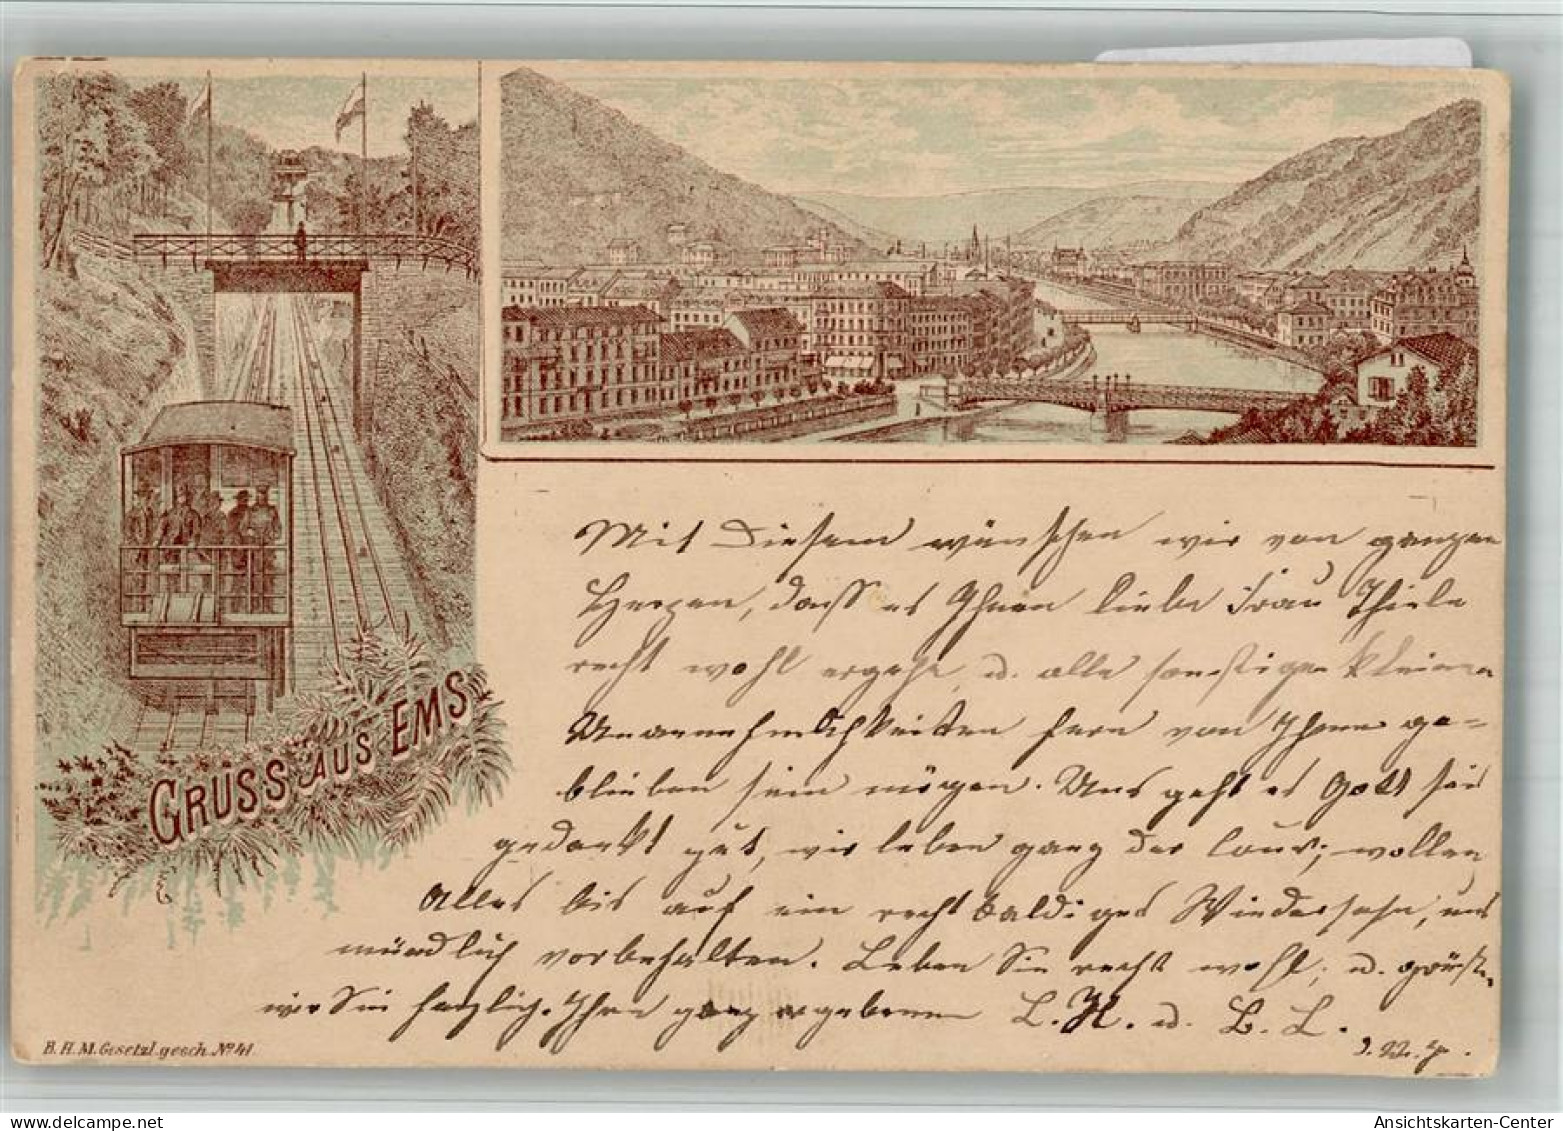 GRUSS AUS EMS
Mit Diesem wünschen wir von ganzen
Herzen, dass es Ihnen liebe Frau Thiele
recht wohl ergehe, u. alle sonstigen kleinen
Unannehmlichkeiten fern von Ihnen ge=
blieben sein mögen. Uns geht es Gott sei
gedankt gut, wir leben ganz der Cour; wollen
Alles bis auf ein recht baldiges Wiedersehn, uns
mündlich vorbehalten. Leben Sie recht wohl; u. grüssen
wir Sie herzlich. Ihre ganz ergebenen L. H. u. B. L.
B. H. M. Gesetzl. gesch. No 41.
delcampe.net
Ansichtskarten-Center